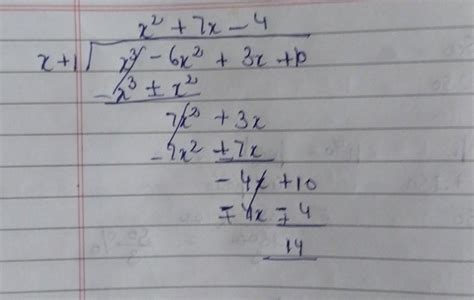 x² + 7x - 4
x+1 ) x³ - 6x² + 3x + 10
- x³ ± x²
7x² + 3x
- 7x² + 7x
- 4x + 10
∓ 4x ∓ 4
14